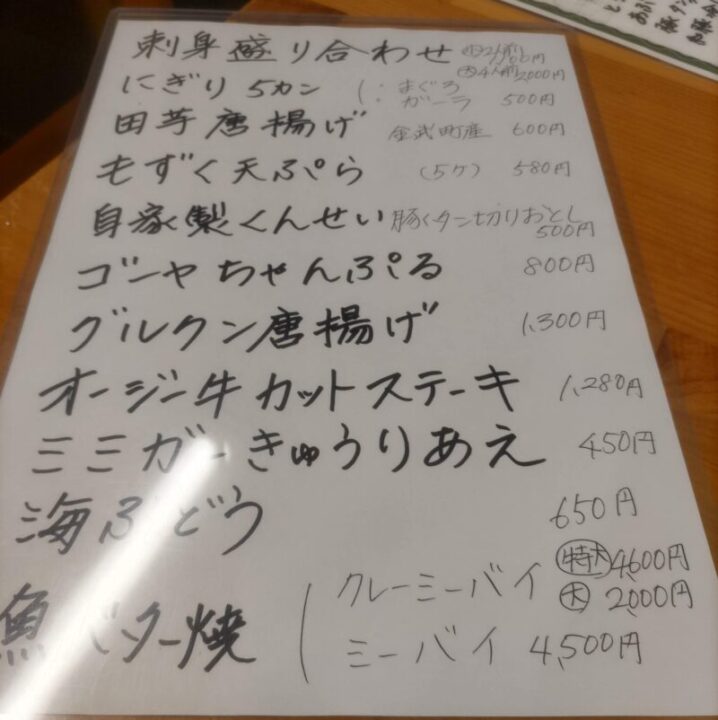 刺身盛り合わせ 小2人前 円
大4人前2000円
にぎり 5カン まぐろ
ガーラ 500円
田芋唐揚げ 金武町産 600円
もずく天ぷら (5ケ) 580円
自家製くんせい 豚タン切りおとし
500円
ゴーヤちゃんぷる 800円
グルクン唐揚げ 1,300円
オージー牛カットステーキ 1,280円
ミミガーきゅうりあえ 450円
海ぶどう 650円
魚バター焼 クレーミーバイ 特大 4,600円
大 2,000円
ミーバイ 4,500円